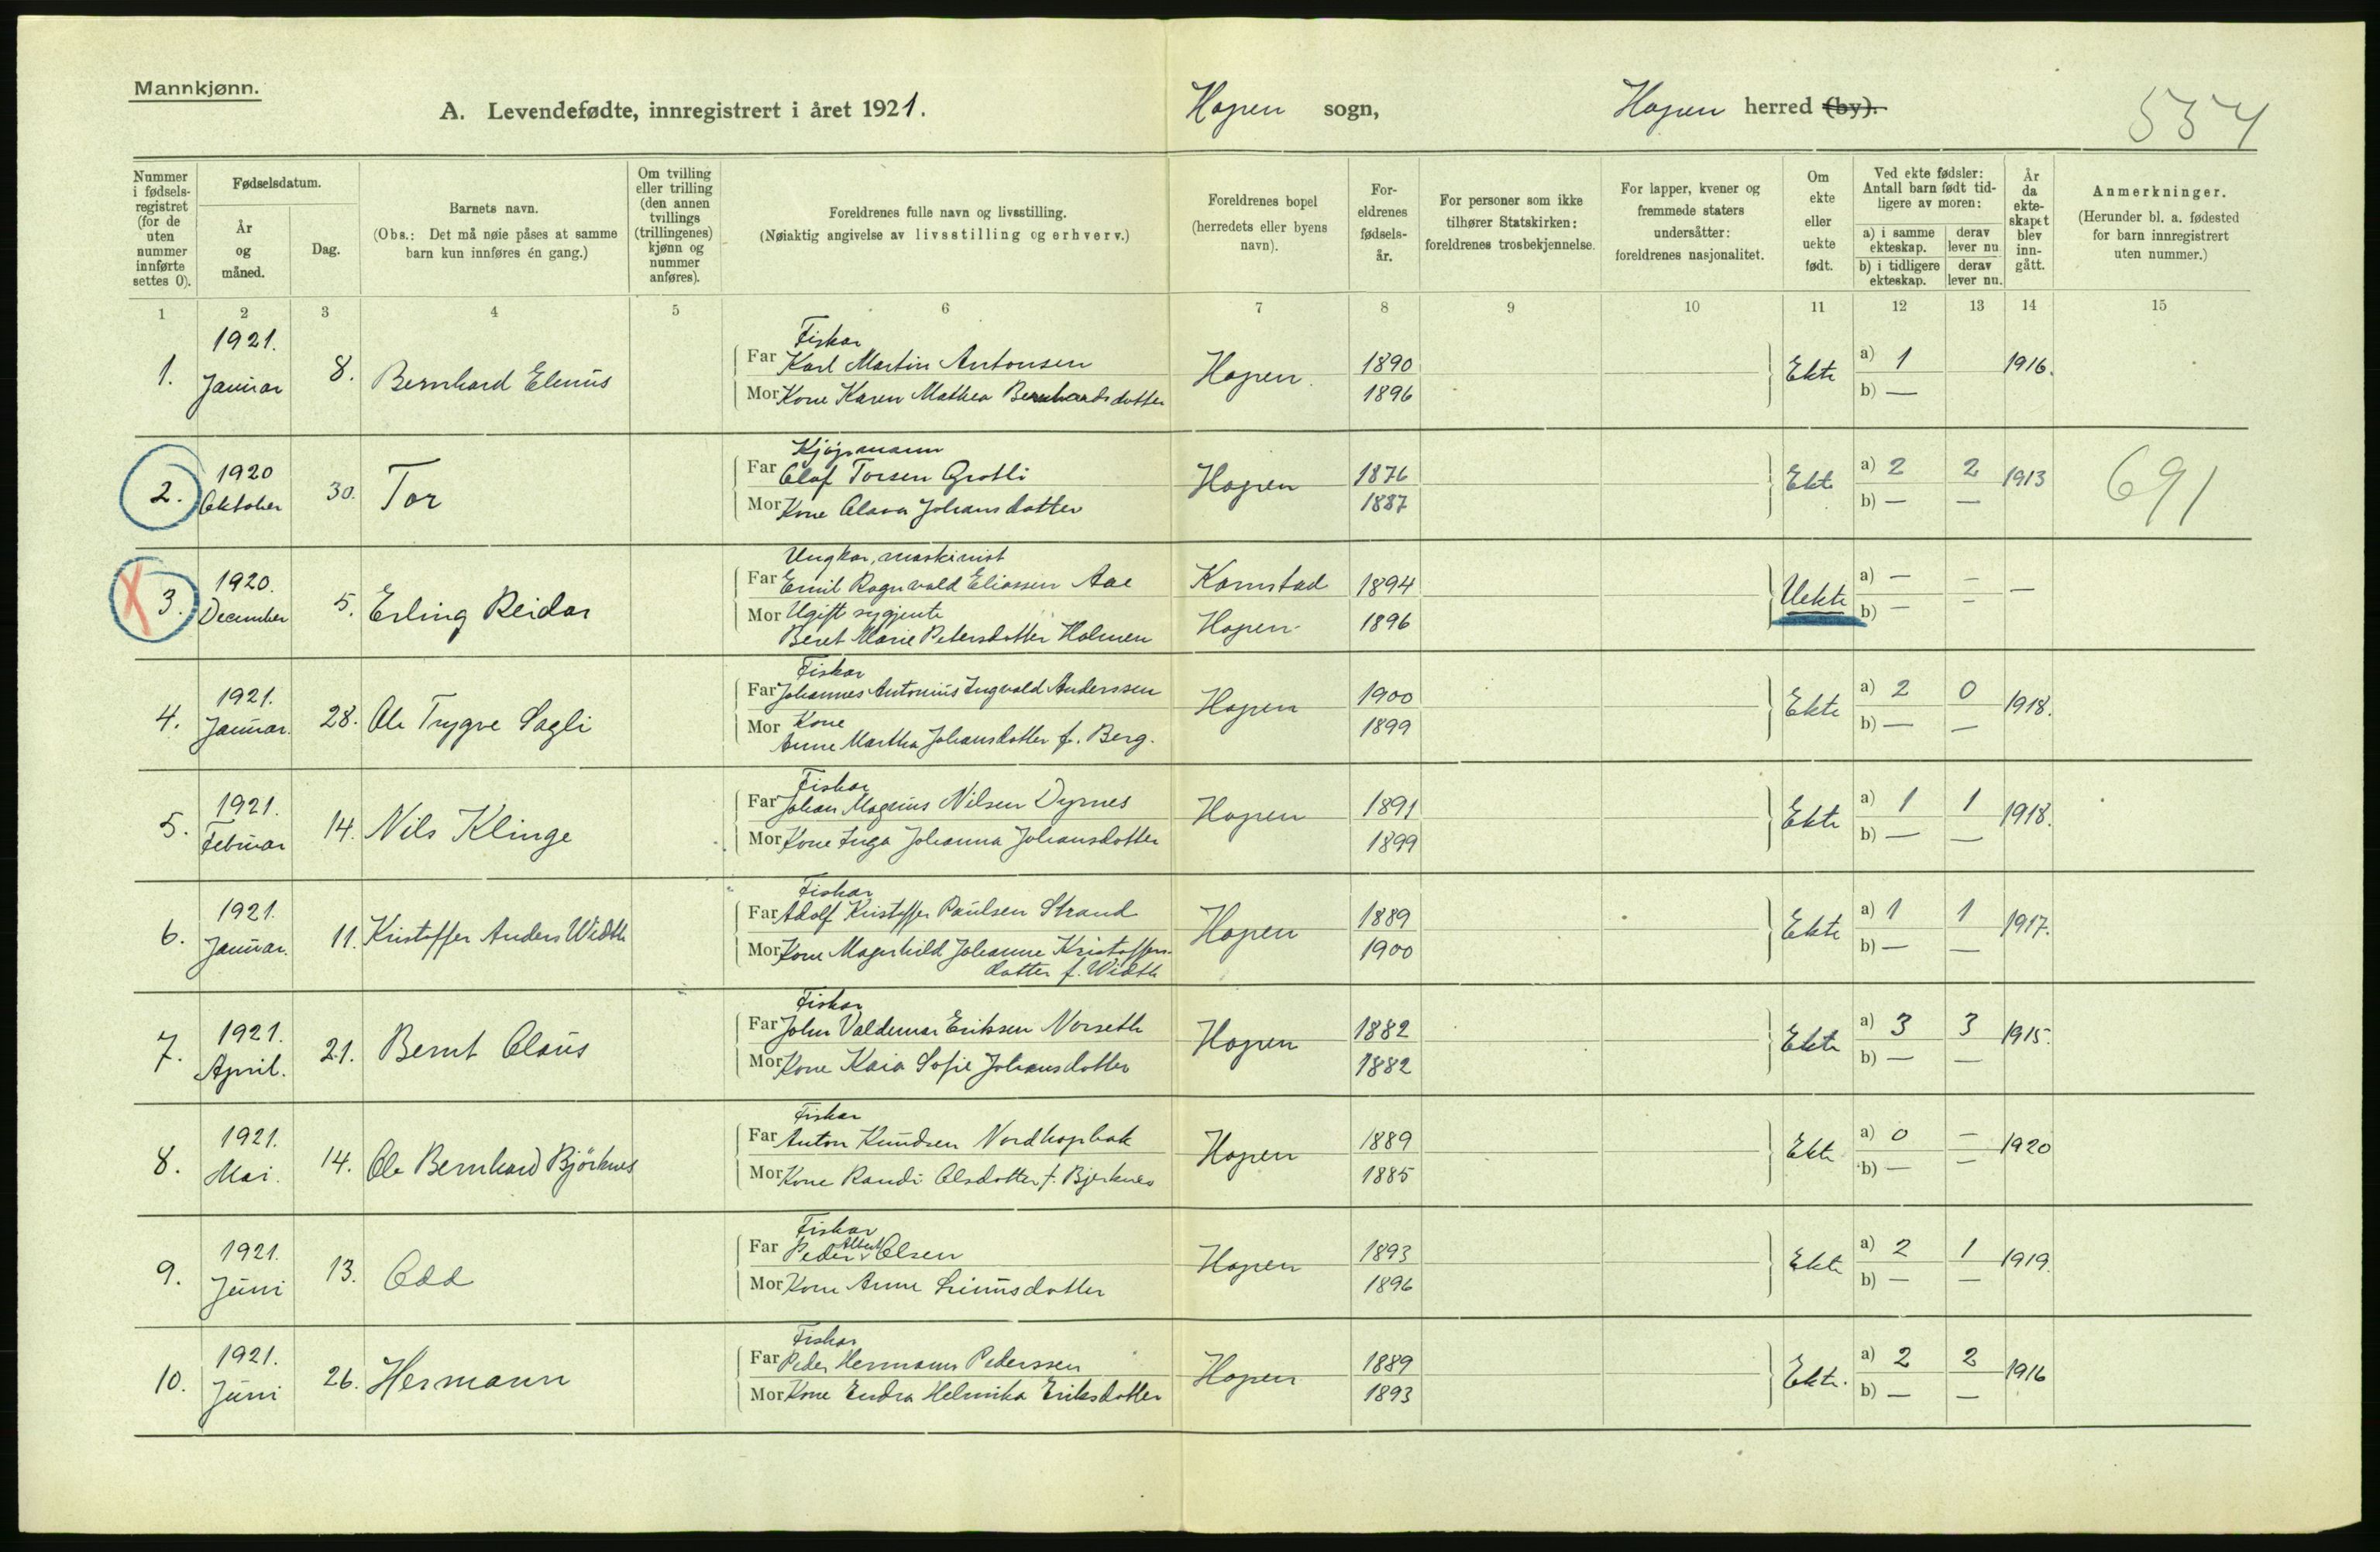 Mannkjønn.
A. Levendefødte, innregistrert i året 1921. Hopen sogn, Hopen herred (by). 554
Nummer i fødsels-registret (for de uten nummer innførte settes 0).
Fødselsdatum.
År og måned.
Dag.
Barnets navn.
(Obs.: Det må nøie påses at samme barn kun innføres én gang.)
Om tvilling eller trilling (den annen tvillings (trillingenes) kjønn og nummer anføres).
Foreldrenes fulle navn og livsstilling.
(Nøiaktig angivelse av livsstilling og erhverv.)
Foreldrenes bopel (herredets eller byens navn).
For-eldrenes fødsels-år.
For personer som ikke tilhører Statskirken: foreldrenes trosbekjennelse.
For lapper, kvener og fremmede staters undersåtter: foreldrenes nasjonalitet.
Om ekte eller uekte født.
Ved ekte fødsler: Antall barn født tid-ligere av moren:
a) i samme ekteskap. derav lever nu
b) i tidligere ekteskap. derav lever nu.
År da ekte-skapet blev inn-gått.
Anmerkninger.
(Herunder bl. a. fødested for barn innregistrert uten nummer.)
1 2 3 4 5 6 7 8 9 10 11 12 13 14 15
1921. Fiskar
1. Januar 8. Bernhard Elenus Far Karl Martin Antonsen Hopen. 1890 Ekte a) 1 1916.
Mor Kone Karen Mathea Bernhardsdotter 1896 b) —
Kjøpmann
2. 1920 Oktober 30. Tor Far Olaf Torsen Grotli Hopen 1876 Ekte a) 2 2 1913 691
Mor Kone Olava Johansdotter 1887 b) — —
Ungkar, maskinist
X 3. 1920. December 5. Erling Reidar Far Emil Ragnvald Eliassen Aae Kornstad 1894 Uekte a) — — —
Mor Ugift sygjente
Beret Marie Petersdotter Holmen Hopen 1896 b) — —
Fiskar
4. 1921. Januar. 28. Ole Trygve Sagli Far Johannes Antonius Ingvald Anderssen Hopen 1900 Ekte a) 2 0 1918.
Mor Kone
Anne Martha Johansdotter f. Berg. 1899 b) — —
Fiskar
5. 1921. Februar 14. Nils Klinge Far Johan Magnus Nilsen Dyrnes Hopen 1891 Ekte a) 1 1 1918.
Mor Kone Inga Johanna Johansdotter 1899 b) — —
Fiskar
6. 1921. Januar. 11. Kristoffer Anders Width Far Adolf Kristoffer Paulsen Strand Hopen 1889 Ekte a) 1 1 1917.
Mor Kone Magnhild Johanne Kristoffers-
dotter f. Width 1900 b) — —
Fiskar
7. 1921. April. 21. Bernt Olaus Far John Valdemar Eriksen Norseth Hopen 1882 Ekte a) 3 3 1915.
Mor Kone Kaia Sofie Johansdotter 1882 b) — —
Fiskar
8. 1921. Mai. 14. Ole Bernhard Björknes Far Anton Knudsen Nordhopbak Hopen 1889 Ekte a) 0 — 1920
Mor Kone Randi Olsdotter f. Bjerknes 1885 b) — —
Fiskar
9. 1921. Juni 13. Odd Far Peder Albert Olsen Hopen 1893 Ekte a) 2 1 1919.
Mor Kone Anne 1896 b) — —
Fiskar
10. 1921. Juni 26. Hermann Far Peder Hermann Pederssen Hopen 1889 Ekte. a) 2 2 1916
Mor Kone Endra Helmika Eriksdotter 1893 b) — —